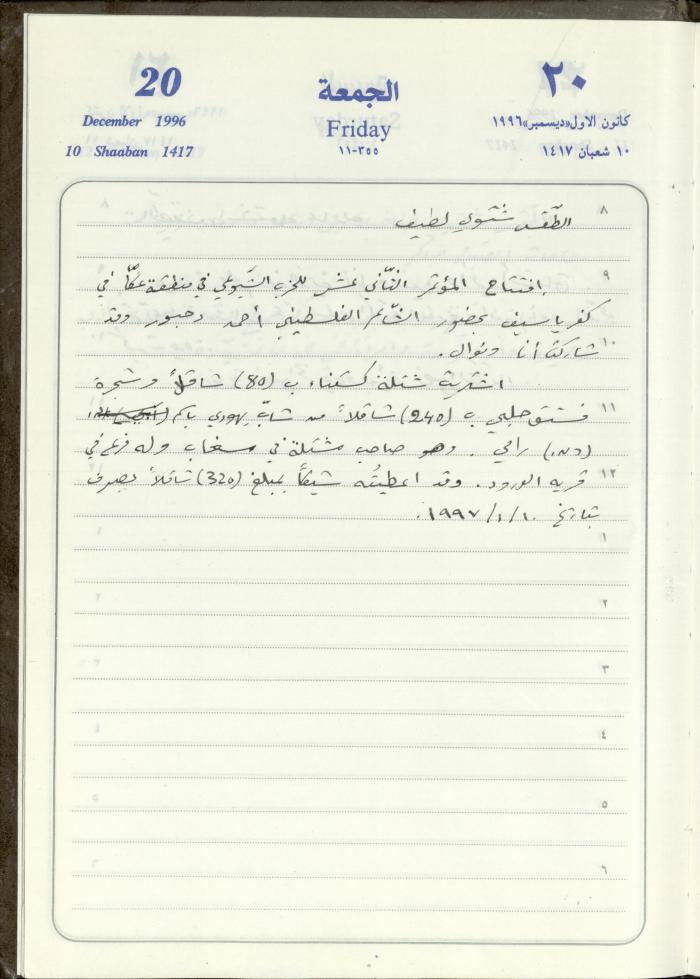 20
December 1996
10 Shaaban 1417
الجمعة
Friday
١١-٣٥٥
٢٠
كانون الاول «ديسمبر» ١٩٩٦
١٠ شعبان ١٤١٧
٨ الطّقس شتوي لطيف
٩ إفتتاح المؤتمر الثّاني عشر للحزب الشّيوعي في منطقة عكّا في
كفر ياسيف بحضور الشّاعر الفلسطيني أحمد دحبور وقد
١٠ شاركت أنا ونوال.
اشتريت شتلة كستناء ب (80) شاقلاً وشجرة
١١ فستق حلبي ب (240) شاقلاً من شابّ يهودي باسم
رامي. وهو صاحب مشتلة في وله فرع في
١٢ قرية الورود. وقد اعطيتُه شيكًا بمبلغ (320) شاقلاً يصرف
بتاريخ ١٠/١/١٩٩٧.
١
٢
٣
٤
٥
٦